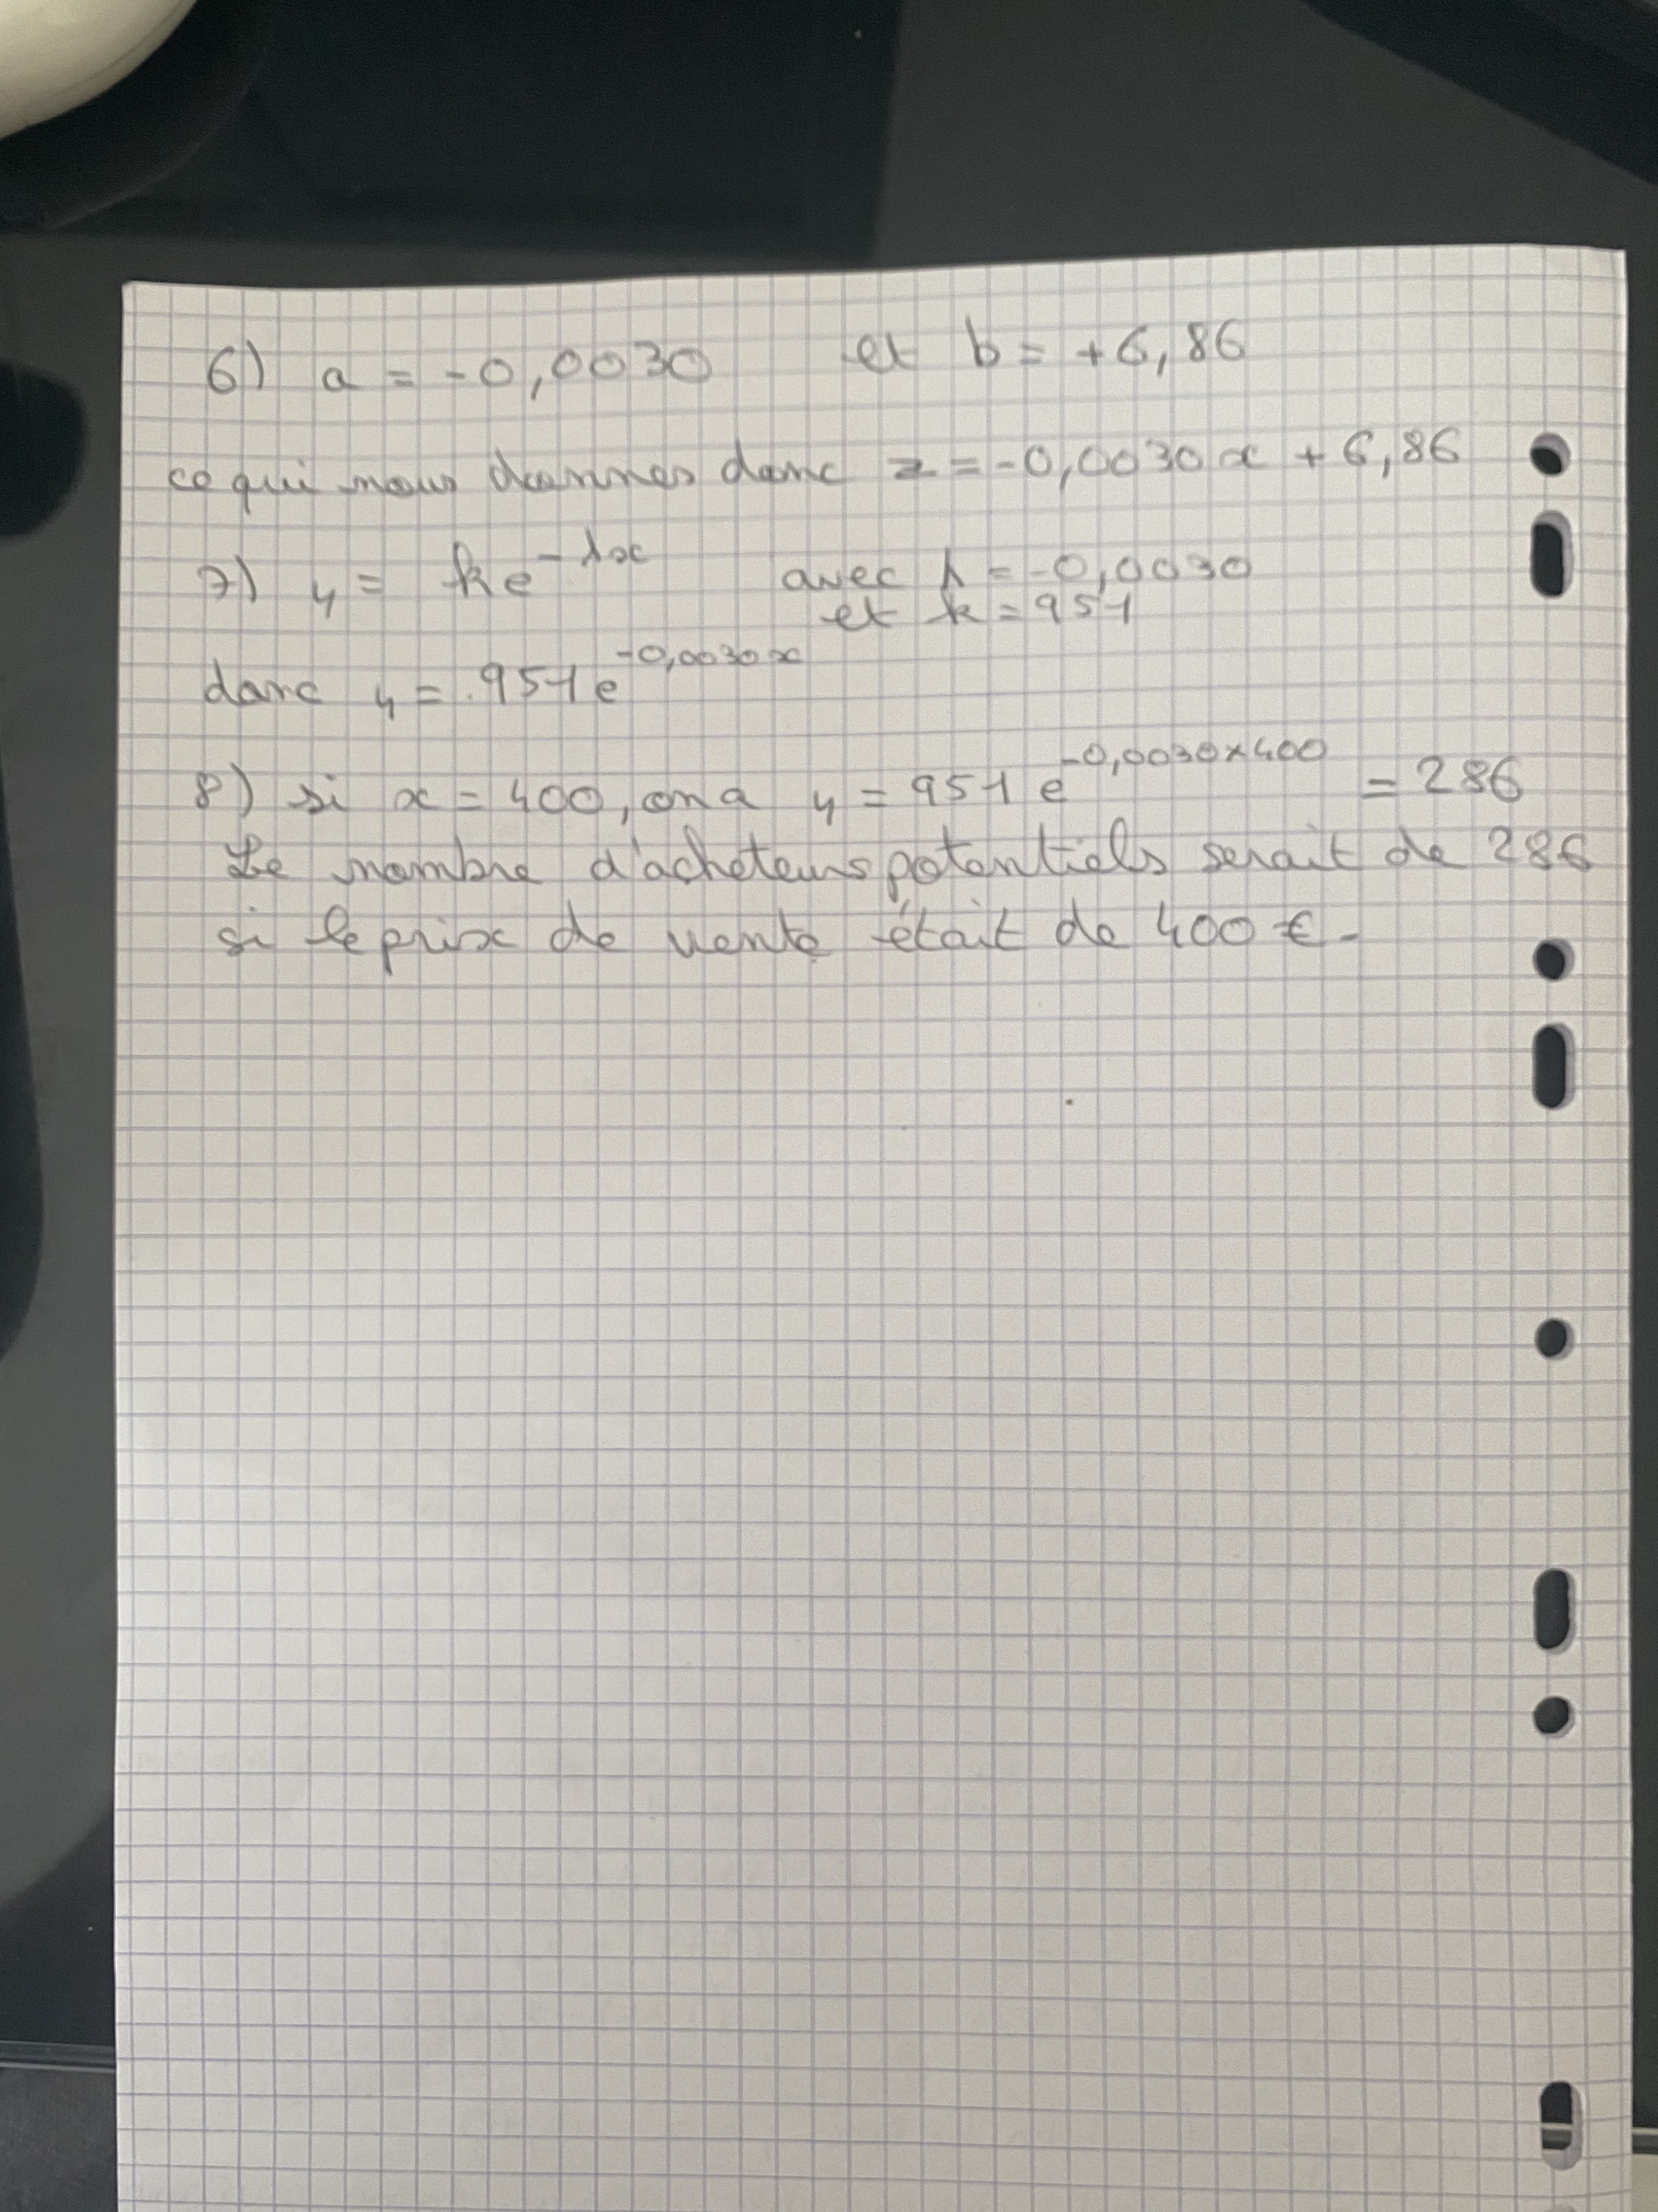 6) a = -0,0030 et b = +6,86
ce qui nous donnes donc z = -0,0030x + 6,86
7) y = ke^-λx avec λ = -0,0030
et k = 951
donc y = 951e^-0,0030x
8) si x = 400, on a y = 951 e^-0,0030×400 = 286
Le nombre d'acheteurs potentiels serait de 286
si le prix de vente était de 400 €.